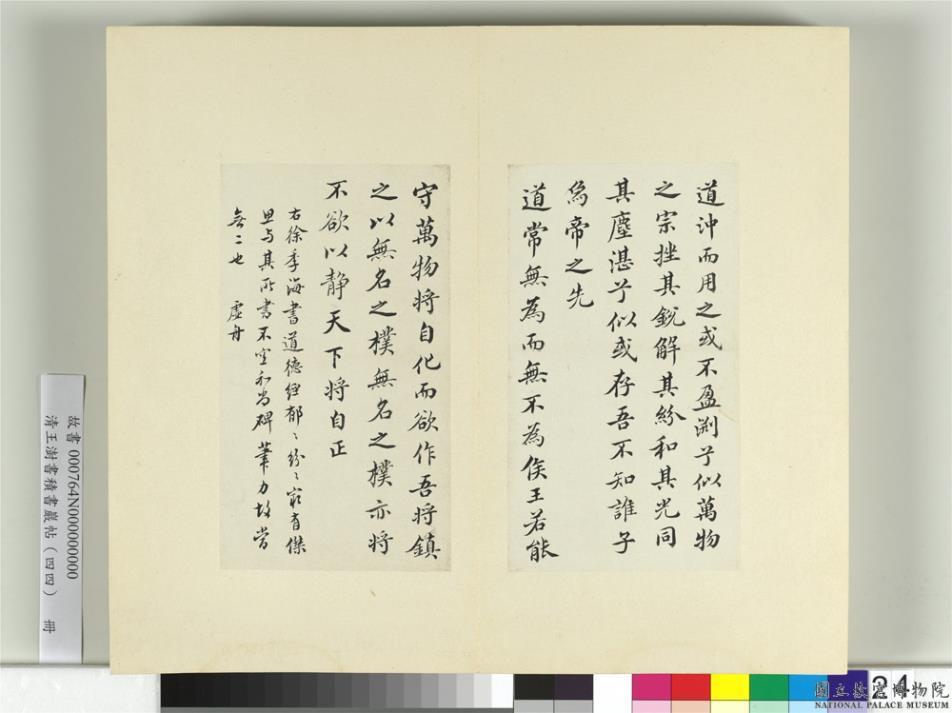 道沖而用之或不盈淵兮似萬物
之宗挫其銳解其紛和其光同
其塵湛兮似或存吾不知誰子
爲帝之先
道常無為而無不為侯王若能
守萬物將自化而欲作吾將鎮
之以無名之樸無名之樸亦將
不欲以靜天下將自正
右徐季海書道德經郁〻紛〻寂有傑
思与其所書不空和尚碑筆力故當
無二也 虛舟
故書 000764N000000000
清王澍書積書巖帖（四四） 冊
24
國立故宮博物院
NATIONAL PALACE MUSEUM